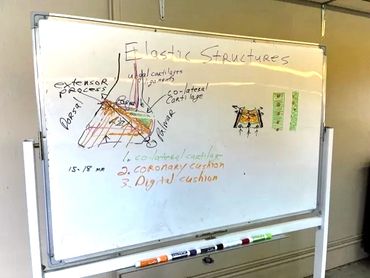 Elastic Structures
extensor
process
co-lateral
cartilage
Dorsal
Palmar
15-18 mm
1. co-lateral cartilage
2. coronary cushion
3. Digital cushion